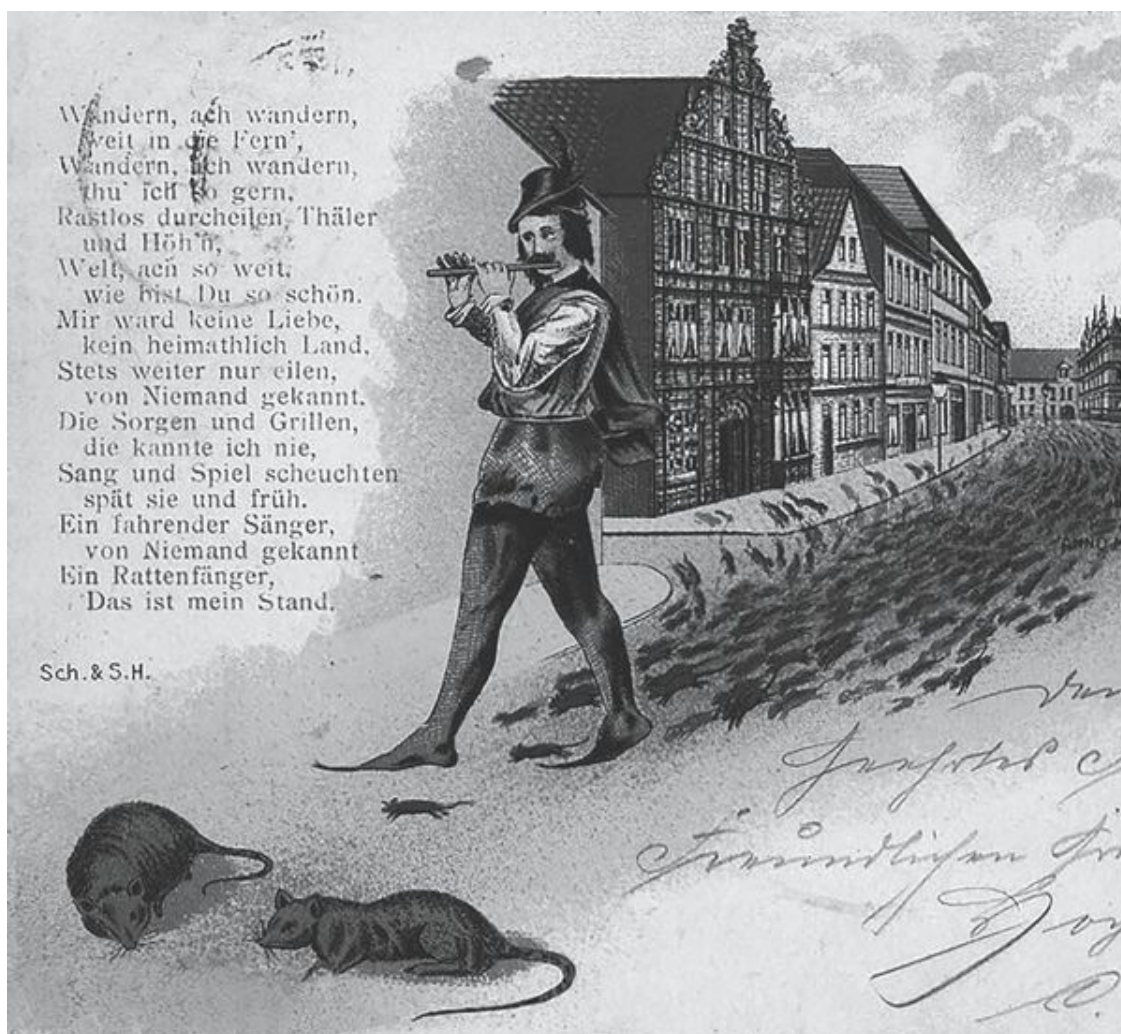 Wandern, ach wandern,
weit in die Fern',
Wandern, ach wandern,
thu' ich so gern.
Rastlos durcheilen Thäler
und Höh'n,
Welt, ach so weit,
wie bist Du so schön.
Mir ward keine Liebe,
kein heimathlich Land,
Stets weiter nur eilen,
von Niemand gekannt.
Die Sorgen und Grillen,
die kannte ich nie,
Sang und Spiel scheuchten
spät sie und früh.
Ein fahrender Sänger,
von Niemand gekannt
Ein Rattenfänger,
Das ist mein Stand.
Sch. & S.H.
ANNO
Geehrtes
Freundlichen